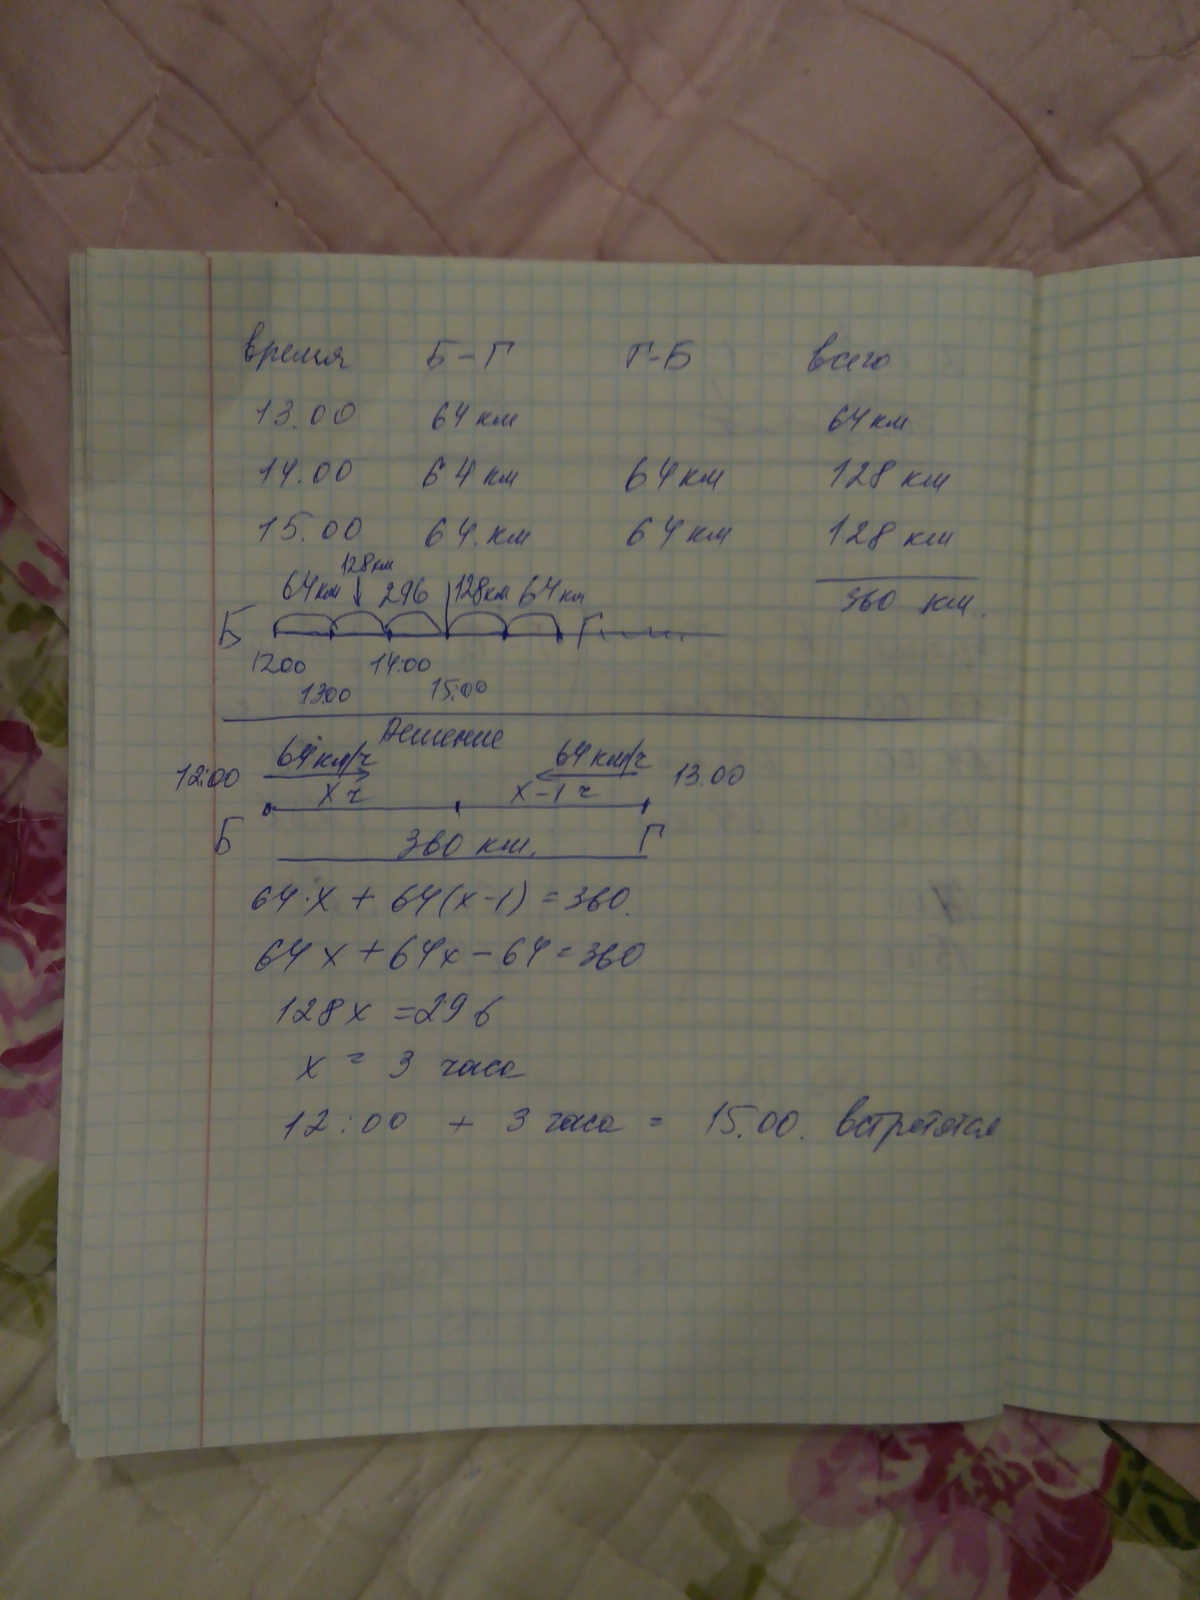 время Б-Г Г-Б всего
13.00 64 км 64 км
14.00 64 км 64 км 128 км
15.00 64. км 64 км 128 км
360 км.
128км
64км 296 128км 64км
Б Г
1200 14:00
13:00 15:00
Решение
12:00 64км/ч 64 км/ч 13.00
x ч x-1 ч
Б 360 км. Г
64·x + 64(x-1) = 360.
64x + 64x - 64 = 360
128x = 296
x = 3 часа
12:00 + 3 часа = 15.00. встретятся